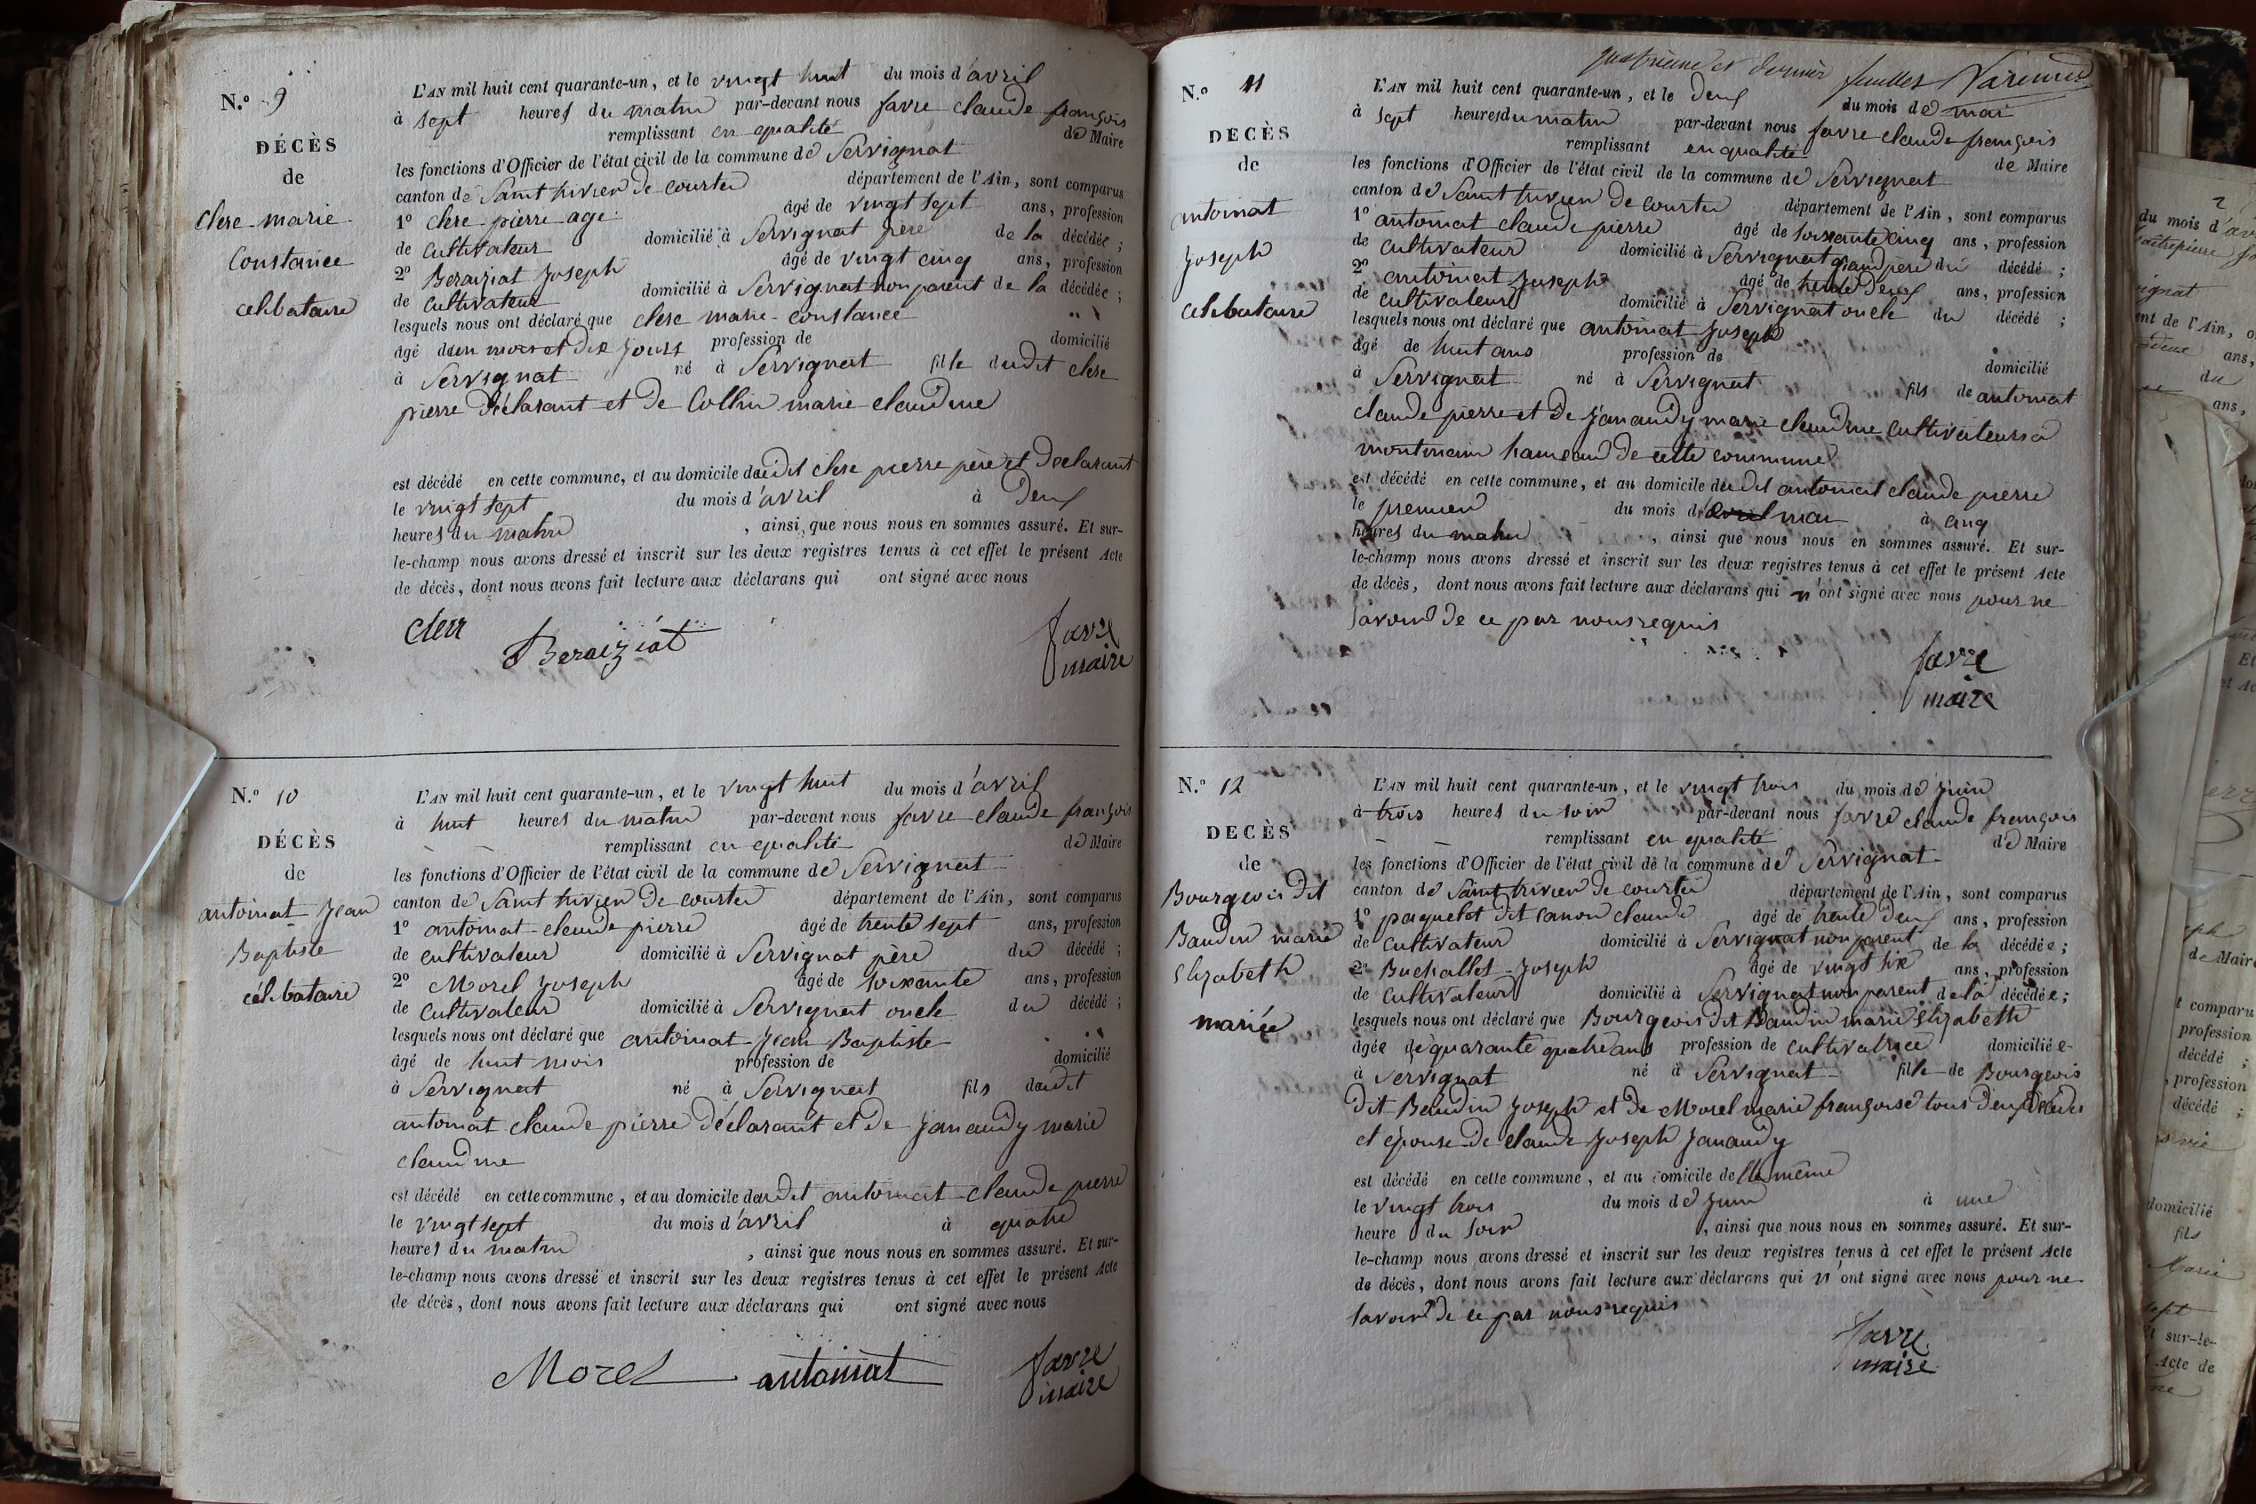 N.° 9
DÉCÈS
de
clerc marie
Constance
celibataire
L'AN mil huit cent quarante-un, et le vingt huit du mois d'avril
à sept heures du matin par-devant nous favre claude françois
remplissant en qualité de Maire
les fonctions d'Officier de l'état civil de la commune de Servignat
canton de Saint trivier de courte département de l'Ain, sont comparus
1° clerc pierre age âgé de vingt sept ans, profession
de cultivateur domicilié à Servignat père de la décédée ;
2° Beraiziat Joseph âgé de vingt cinq ans, profession
de cultivateur domicilié à Servignat non parent de la décédée ;
lesquels nous ont déclaré que clerc marie constance
âgé d'un mois et dix jours profession de domicilié
à Servignat né à Servignat fille dudit clerc
pierre déclarant et de Collin marie claudine
est décédé en cette commune, et au domicile dudit clerc pierre père et declarant
le vingt sept du mois d'avril à deux
heures du matin , ainsi que nous nous en sommes assuré. Et sur-
le-champ nous avons dressé et inscrit sur les deux registres tenus à cet effet le présent Acte
de décès, dont nous avons fait lecture aux déclarans qui ont signé avec nous
clerc Beraiziat favre
maire
N.° 10
DÉCÈS
de
antoinat Jean
Baptiste
célibataire
L'AN mil huit cent quarante-un, et le vingt huit du mois d'avril
à huit heures du matin par-devant nous favre claude françois
remplissant en qualité de Maire
les fonctions d'Officier de l'état civil de la commune de Servignat
canton de Saint trivier de courte département de l'Ain, sont comparus
1° antoinat claude pierre âgé de trente sept ans, profession
de cultivateur domicilié à Servignat père du décédé ;
2° Morel Joseph âgé de soixante ans, profession
de cultivateur domicilié à Servignat oncle du décédé ;
lesquels nous ont déclaré que antoinat Jean Baptiste
âgé de huit mois profession de domicilié
à Servignat né à Servignat fils dudit
antoinat claude pierre déclarant et de Janaudy marie
claudine
est décédé en cette commune, et au domicile dudit antoinat claude pierre
le vingt sept du mois d'avril à quatre
heures du matin , ainsi que nous nous en sommes assuré. Et sur-
le-champ nous avons dressé et inscrit sur les deux registres tenus à cet effet le présent Acte
de décès, dont nous avons fait lecture aux déclarans qui ont signé avec nous
Morel antoinat favre
maire
quatrieme et dernier feuillet
N.° 11
DÉCÈS
de
antoinat
Joseph
celibataire
L'AN mil huit cent quarante-un, et le deux du mois de mai
à sept heures du matin par-devant nous favre claude françois
remplissant en qualité de Maire
les fonctions d'Officier de l'état civil de la commune de Servignat
canton de Saint trivier de courte département de l'Ain, sont comparus
1° antoinat claude pierre âgé de soixante cinq ans, profession
de cultivateur domicilié à Servignat grand père du décédé ;
2° antoinat Joseph âgé de trente deux ans, profession
de cultivateur domicilié à Servignat oncle du décédé ;
lesquels nous ont déclaré que antoinat Joseph
âgé de huit ans profession de domicilié
à Servignat né à Servignat fils de antoinat
claude pierre et de Janaudy marie claudine cultivateurs à
hameau de cette commune
est décédé en cette commune, et au domicile dudit antoinat claude pierre
le premier du mois d'avril mai à cinq
heures du matin , ainsi que nous nous en sommes assuré. Et sur-
le-champ nous avons dressé et inscrit sur les deux registres tenus à cet effet le présent Acte
de décès, dont nous avons fait lecture aux déclarans qui n'ont signé avec nous pour ne
savoir de ce par nous requis
favre
maire
N.° 12
DECÈS
de
Bourgeois dit
Baudin marie
Elizabeth
mariée
L'AN mil huit cent quarante-un, et le vingt trois du mois de Juin
à trois heures du soir par-devant nous favre claude françois
remplissant en qualité de Maire
les fonctions d'Officier de l'état civil de la commune de Servignat
canton de Saint trivier de courte département de l'Ain, sont comparus
1° paquelet dit canon claude âgé de trente deux ans, profession
de cultivateur domicilié à Servignat non parent de la décédée ;
2° Buchallet Joseph âgé de vingt six ans, profession
de cultivateur domicilié à Servignat non parent de la décédée ;
lesquels nous ont déclaré que Bourgeois dit Baudin marie Elizabeth
âgée de quarante quatre ans profession de cultivatrice domiciliée
à Servignat né à Servignat fille de Bourgeois
dit Baudin Joseph et de Morel marie françoise tous deux décédés
et épouse de claude Joseph Janaudy
est décédé en cette commune, et au domicile de elle même
le vingt trois du mois de Juin à une
heure du soir , ainsi que nous nous en sommes assuré. Et sur-
le-champ nous avons dressé et inscrit sur les deux registres tenus à cet effet le présent Acte
de décès, dont nous avons fait lecture aux déclarans qui n'ont signé avec nous pour ne
savoir de ce par nous requis
favre
maire